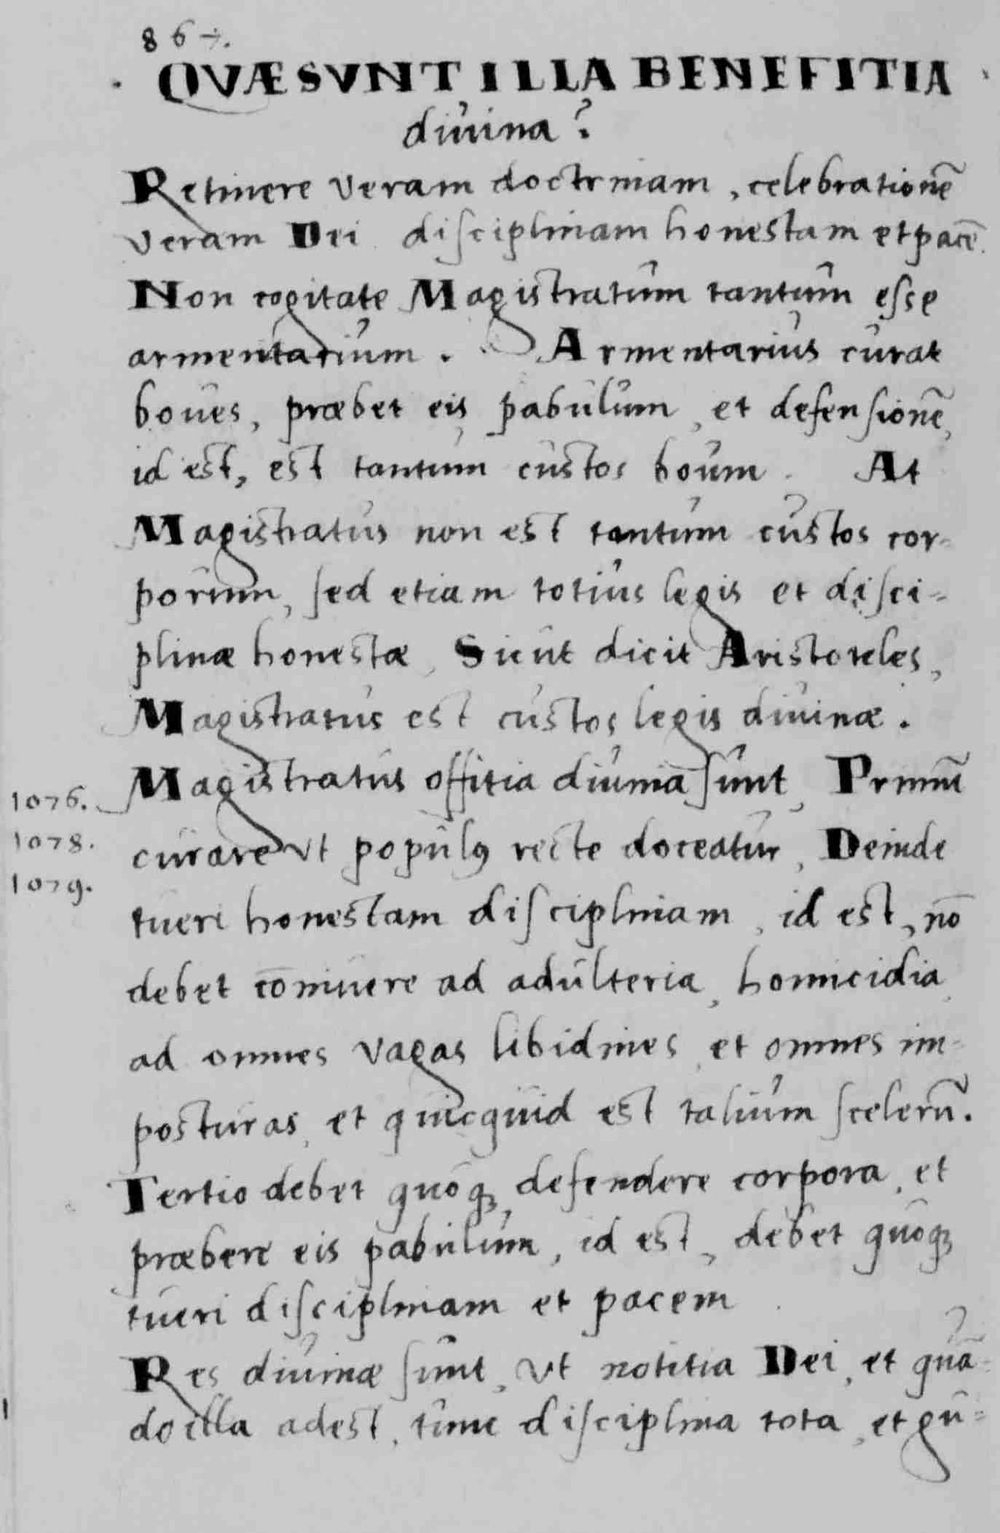 867.
QVÆ SVNT ILLA BENEFITIA
diuina?
Retinere veram doctrinam, celebrationē
veram Dei disciplinam honestam et pacē.
Non cogitate Magistratum tantum esse
armentarium. Armentarius curat
boues, præbet eis pabulum, et defensionē,
id est, est tantum custos boum. At
Magistratus non est tantum custos cor-
porum, sed etiam totius legis et disci-
plinæ honestæ, Sicut dicit Aristoteles,
Magistratus est custos legis diuinæ.
Magistratus offitia diuina sunt, Primū
1076.
1078.
1079.
curare vt populꝰ recte doceatur, Deinde
tueri honestam disciplinam, id est, nō
debet cōniuere ad adulteria, homicidia,
ad omnes vagas libidines, et omnes im-
posturas, et quicquid est talium scelerū.
Tertio debet quoqꝫ defendere corpora, et
præbere eis pabulum, id est, debet quoqꝫ
tueri disciplinam et pacem
Res diuinæ sunt, vt notitia Dei, et quā-
do illa adest, tunc disciplina tota, et gu-